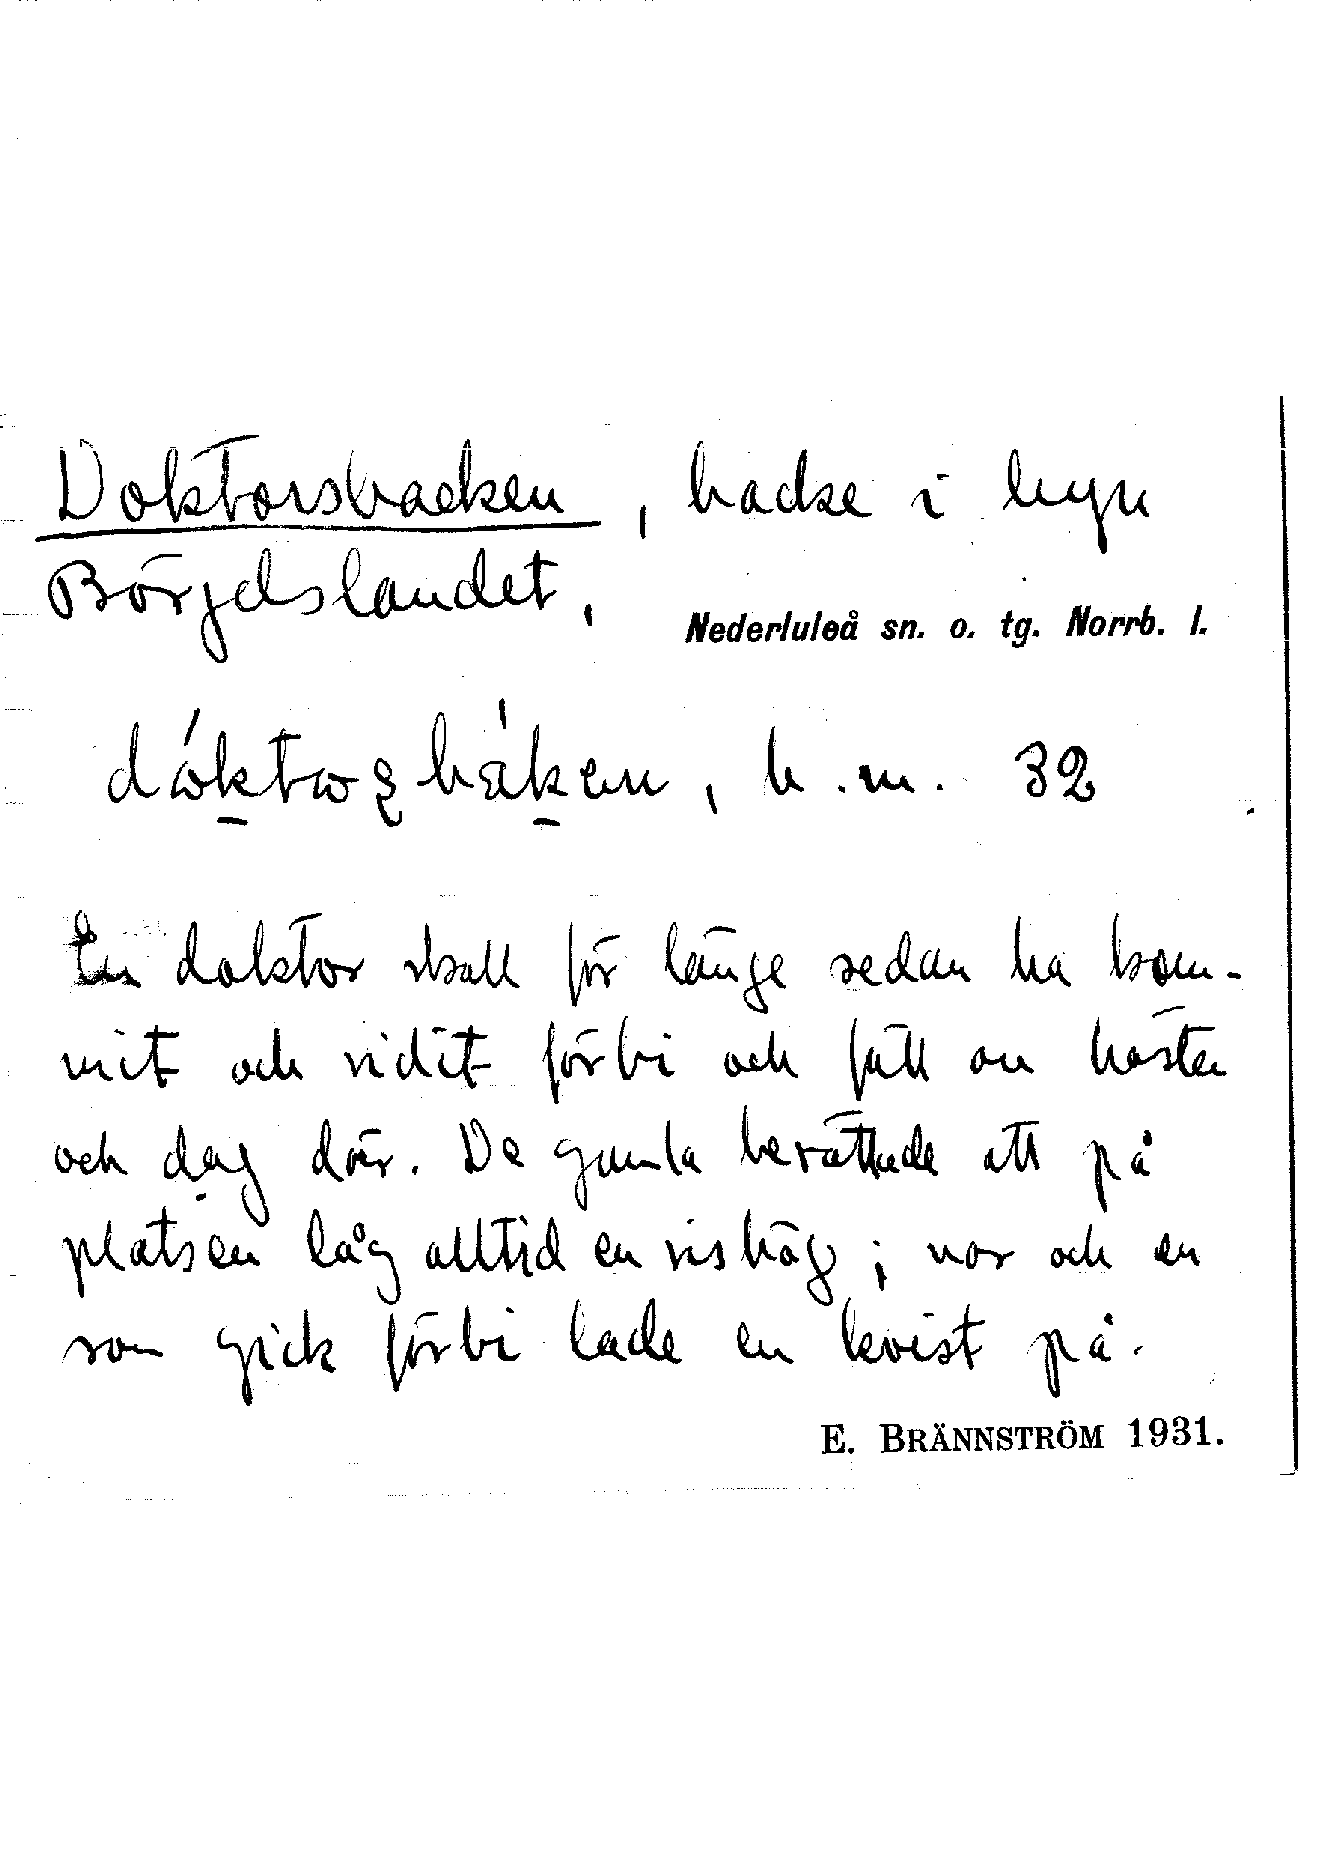 Doktorsbacken, backe i byn
Börjelslandet,
Nederluleå sn. o. tg. Norrb. l.
b.m. 32
En doktor skall för länge sedan ha kom-
mit och ridit förbi och föll av hästen
och dog där. De gamla berättade att på
platsen låg alltid en rishög; var och en
som gick förbi lade en kvist på.
E. BRÄNNSTRÖM 1931.